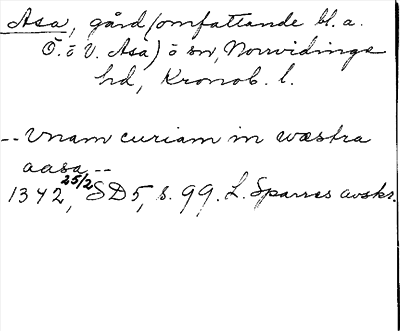 Asa, gård (omfattande bl. a.
Ö. o V. Asa) o sn, Norrvidinge
hd, Kronob. l.
-- Vnam curiam in wæstra
aasa --
1342 25/2, SD 5, s. 99. L. Sparres avskr.